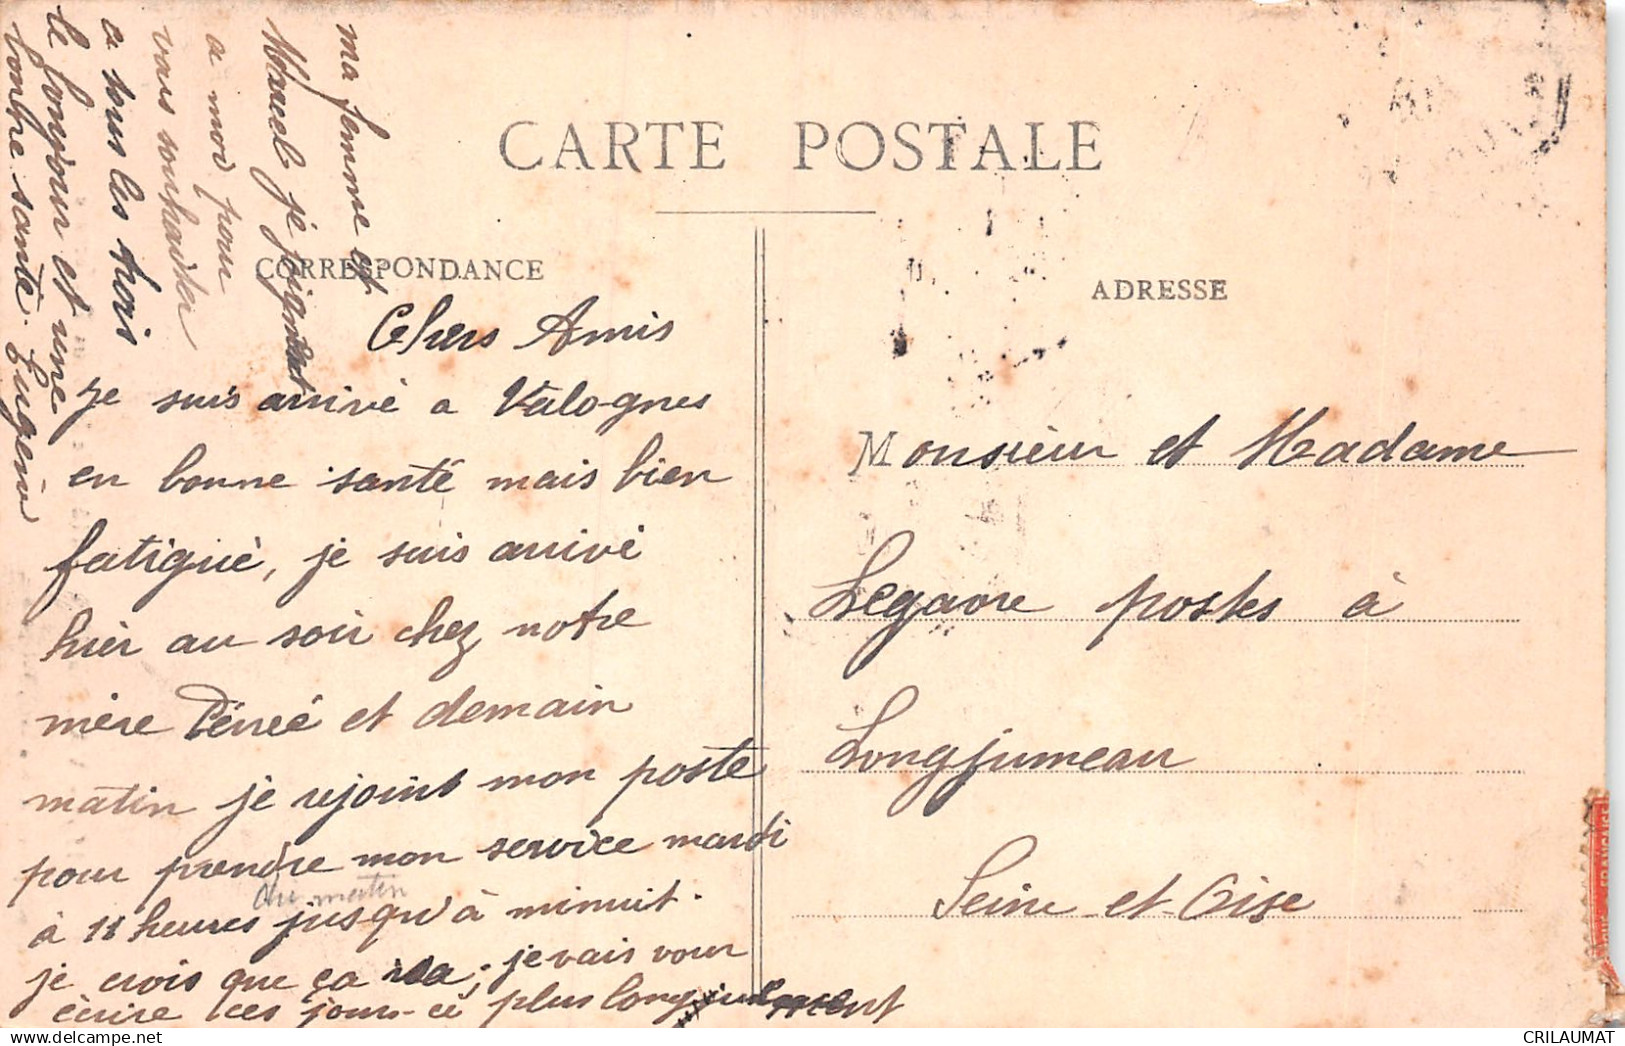 CARTE POSTALE
CORRESPONDANCE
ADRESSE
Chers Amis
je suis arrivé a Valognes
en bonne santé mais bien
fatigué, je suis arrivé
hier au soir chez notre
mère et demain
matin je rejoint mon poste
pour prendre mon service mardi
du matin
à 11 heures jusqu'à minuit.
je crois que ça ira; je vais vour
écrire ces jours-ci plus longuement
ma femme et
Marcel je joignent
a moi pour
vous souhaiter
a tous les trois
le bonjour et une
bonne santé. Eugène
Monsieur et Madame
Legavre postes à
Longjumeau
Seine-et-Oise
FRANCAISE
CRILAUMAT